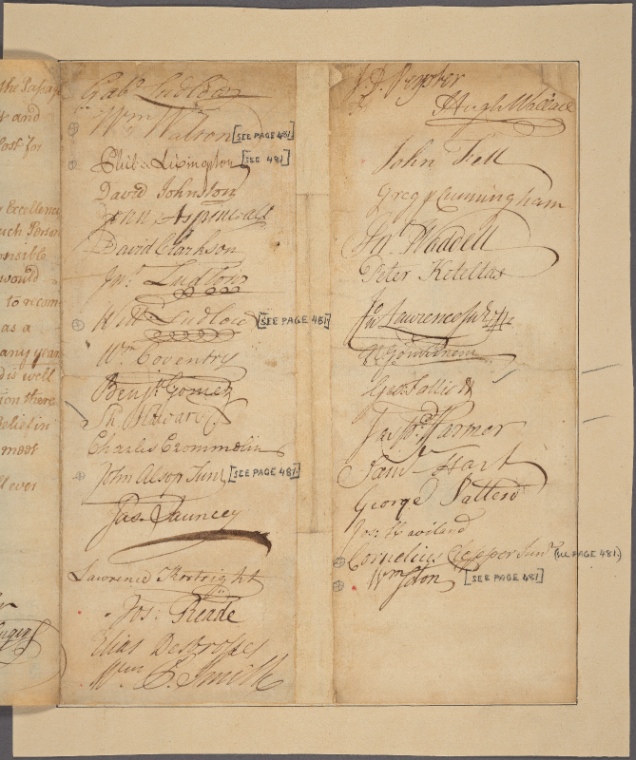 the Passage
and
Post for
Excellency
such Person
would
to recom
as a
many years
is well
ion there
belief in
meet
ever
Gab.l Ludlow
Wm Walton [SEE PAGE 481]
Phil. Livingston [SEE 481]
David Johnston
John Aspinwall
David Clarkson
Ludlow
Wm Ludlow [SEE PAGE 481]
Wm Coventry
Benj. Gomez
Charles Crommelin
John Alsop Junr [SEE PAGE 481]
Jas. Jauncey
Lawrence Kortright
Jos: Reade
Elias Desbrosses
Wm S. Smith
Peyster
Hugh Wallace
John Fell
Greg Cuningham
Jn. Waddell
Peter Keteltas
Jn Lawrence Junr
Jasp.r Farmer
Sam.l Hart
George
Jos: Haviland
Cornelius Clopper Junr (SEE PAGE 481)
Wm [SEE PAGE 481]